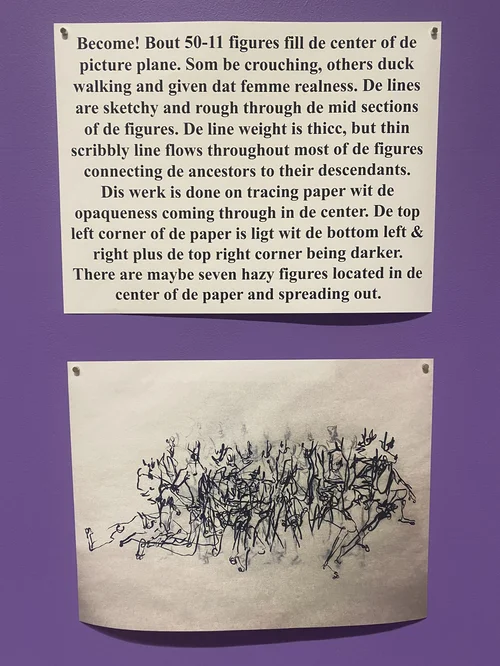 Become! Bout 50-11 figures fill de center of de
picture plane. Som be crouching, others duck
walking and given dat femme realness. De lines
are sketchy and rough through de mid sections
of de figures. De line weight is thicc, but thin
scribbly line flows throughout most of de figures
connecting de ancestors to their descendants.
Dis werk is done on tracing paper wit de
opaqueness coming through in de center. De top
left corner of de paper is ligt wit de bottom left &
right plus de top right corner being darker.
There are maybe seven hazy figures located in de
center of de paper and spreading out.